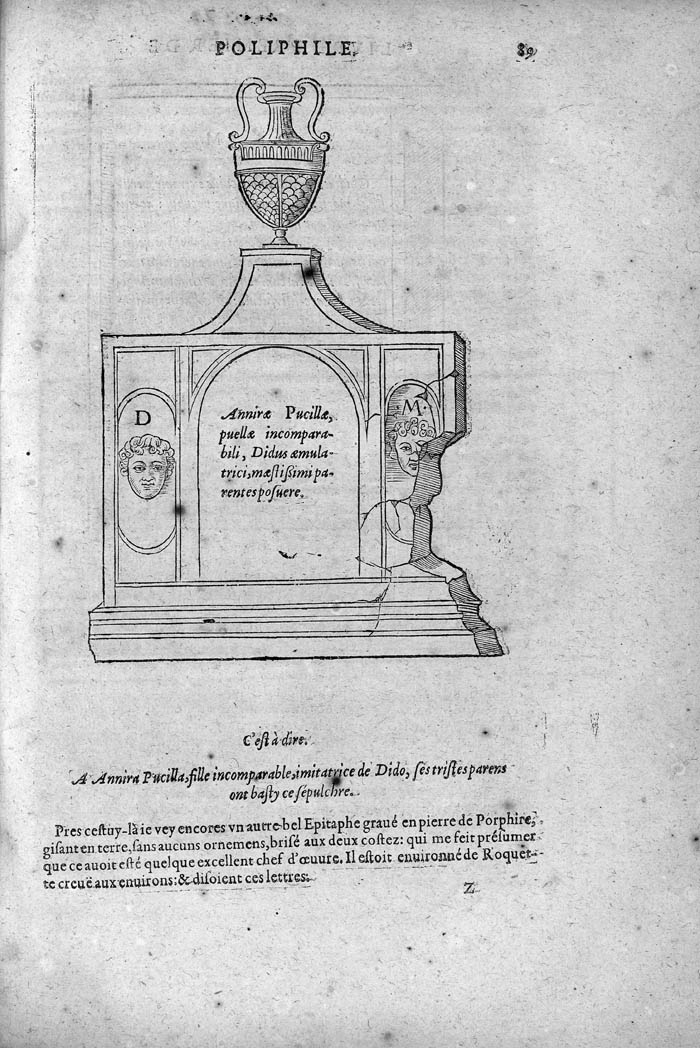 POLIPHILE.
89
D
M.
Anniræ Pucillæ,
puellæ incompara-
bili, Didus æmula-
trici, mæstißimi pa-
rentes posuere.
C'est à dire.
A Annira Pucilla, fille incomparable, imitatrice de Dido, ses tristes parens
ont basty ce sepulchre.
Pres cestuy-là ie vey encores vn autre bel Epitaphe graué en pierre de Porphire,
gisant en terre, sans aucuns ornemens, brisé aux deux costez: qui me feit présumer
que ce auoit esté quelque excellent chef d'œuure. Il estoit enuironné de Roquet-
te creuë aux enuirons: & disoient ces lettres.
Z